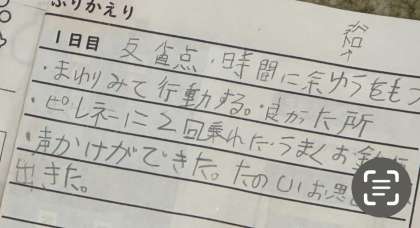 ふりかえり
1日目 反省点・時間に余ゆうをもつ
・まわりみて行動する。良かった所
・ピレネーに2回乗れた・うまくお
・声かけができた。たのしいお思
出きた。